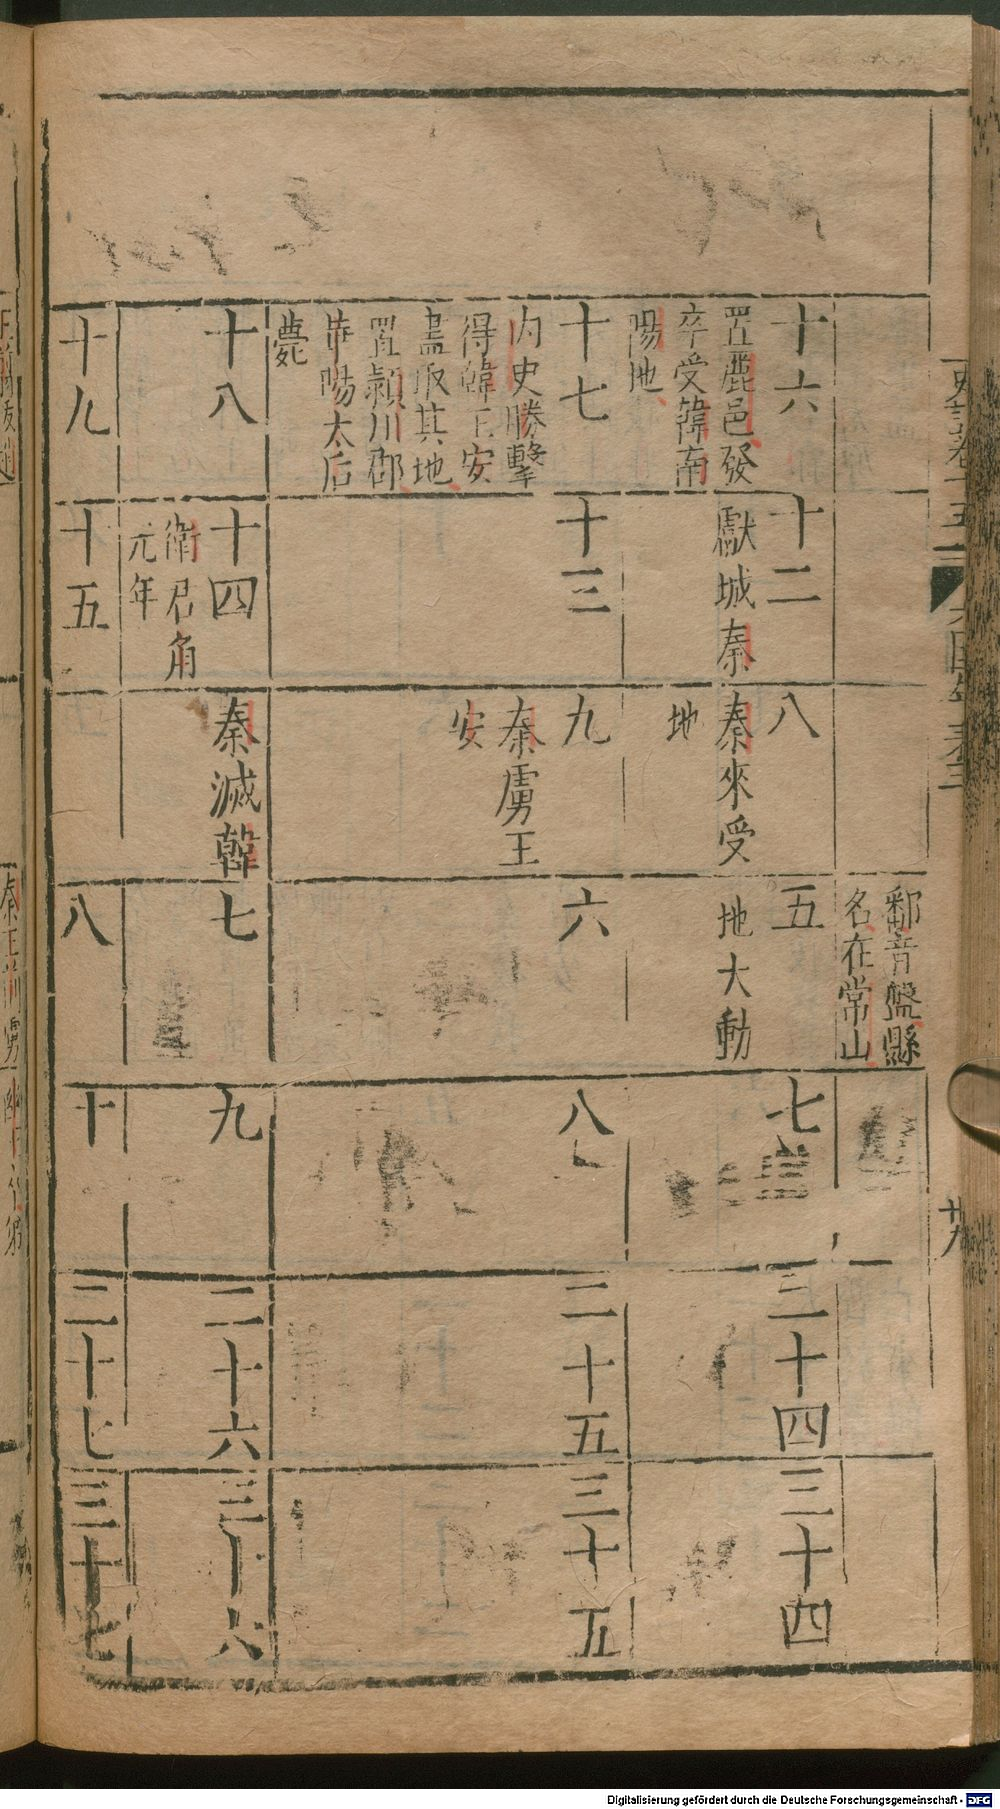 鄱音盤縣
名在常山
十六
置麗邑發
卒受韓南
陽地
十二
獻城秦
八
秦來受
地
五
地大動
七
三十四
三十四
十七
内史勝擊
得韓王安
盡取其地
置潁川郡
華陽太后
薨
十三
九
秦虜王
安
六
八
二十五
三十五
十八
十四
衛君角
元年
秦滅韓
七
九
二十六
三十六
十九
十五
八
十
二十七
三十七
史記卷十五
六國年表三
廿九
Digitalisierung gefördert durch die Deutsche Forschungsgemeinschaft - DFG